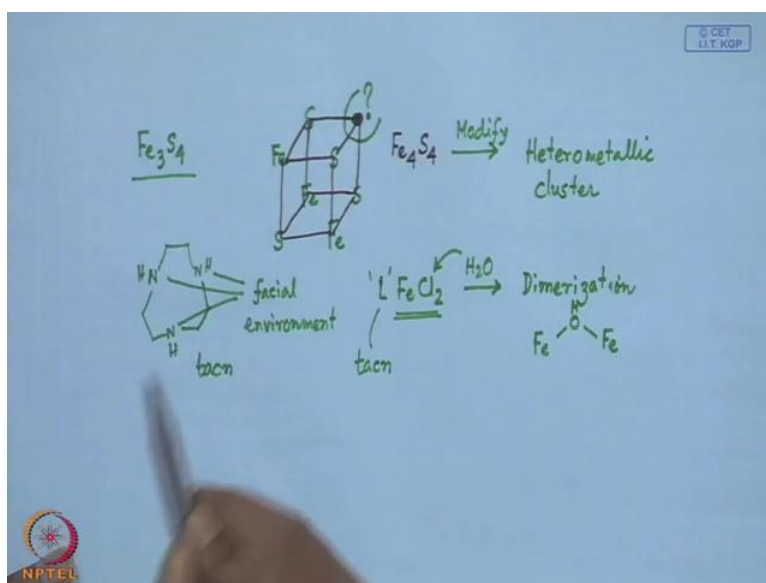 © CET
I.I.T. KGP
Fe3S4
S ?
Fe S
Fe S
S Fe
Fe4S4
Modify
Heterometallic
cluster
HN NH
N
H
facial
environment
tacn
'L' FeCl2
H2O
Dimerization
tacn
H
O
Fe Fe
NPTEL